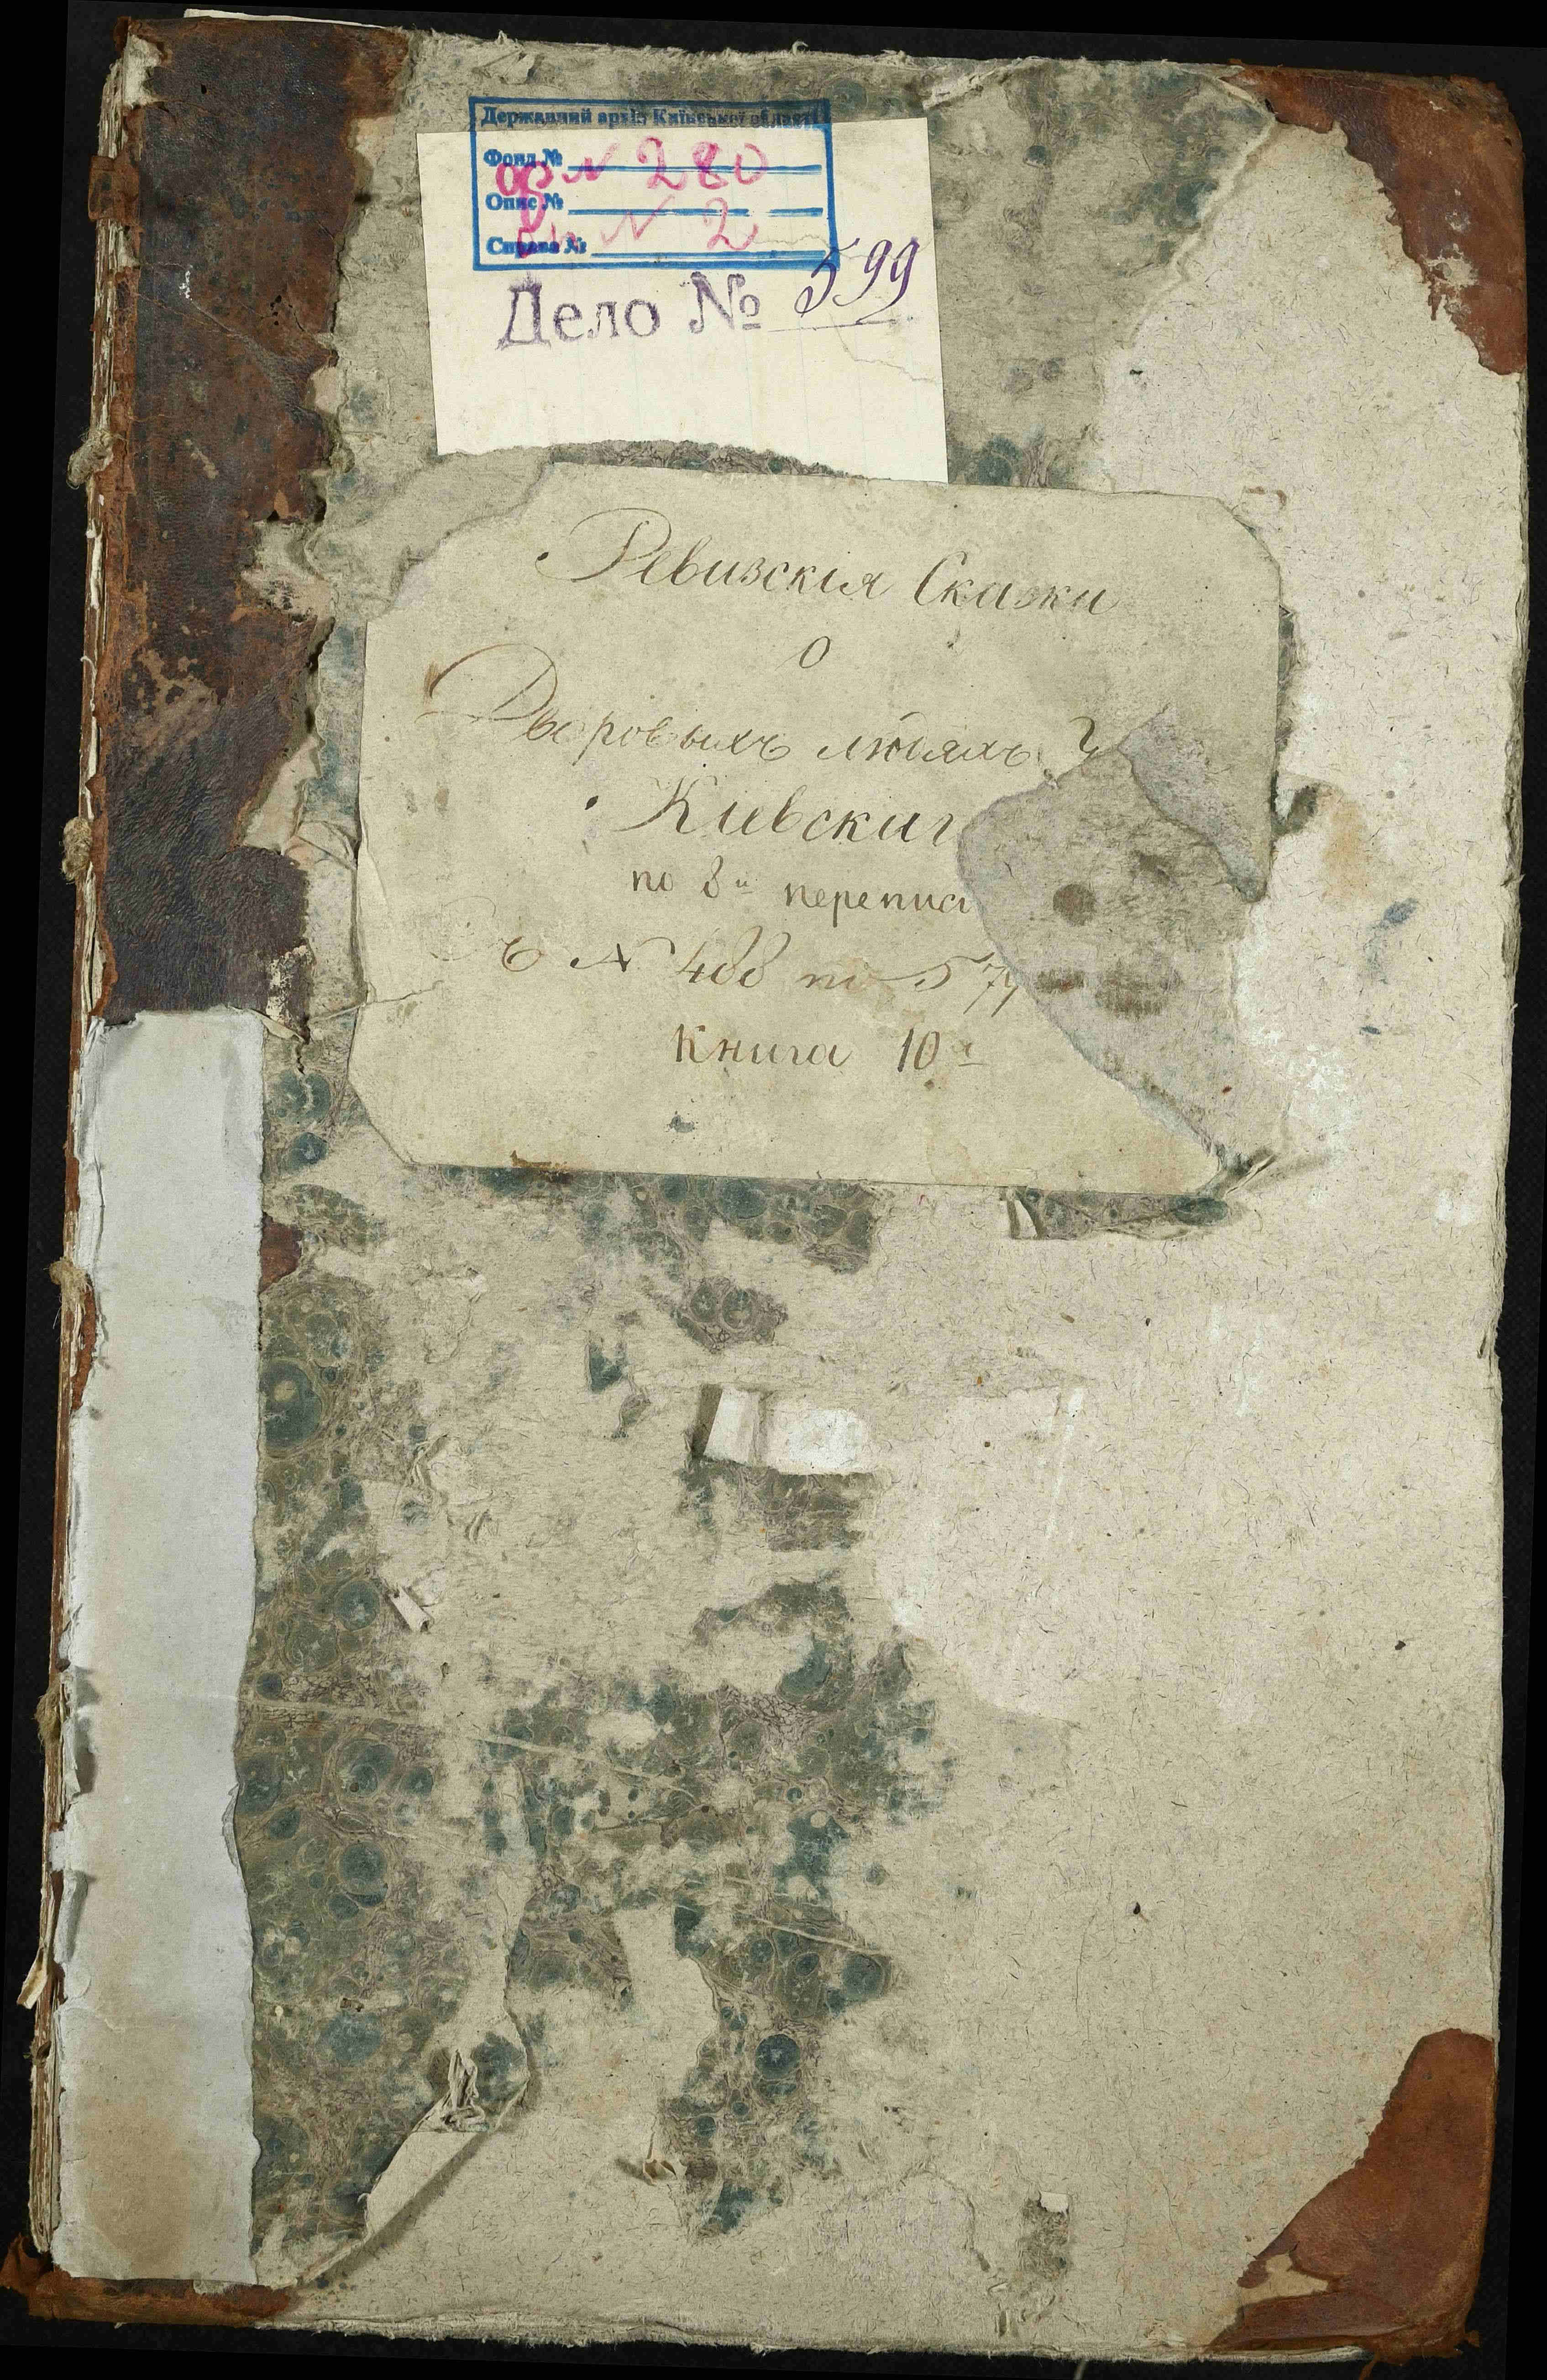 Державний архів Київської області
Фонд № N 280
Опис № N 2
Справа №
Дело № 599
Ревизскія Сказки
о
Дворовыхъ людяхъ
Киевскиг
по 8й переписи
Съ N 488 по 57
Книга 10я